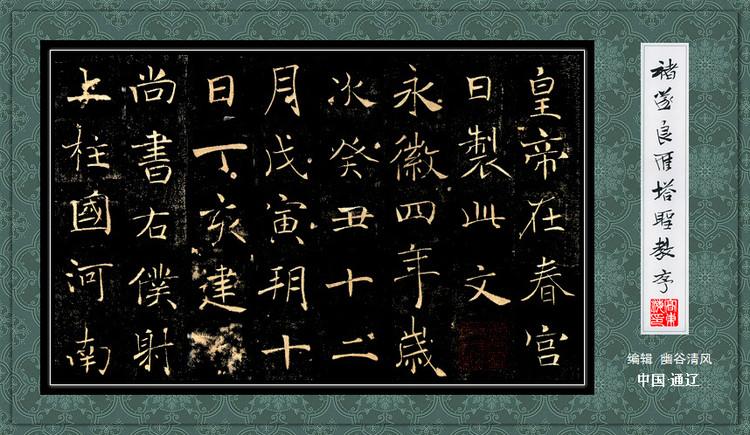 皇帝在春宮
日製此文
永徽四年歲
次癸丑十二
月戊寅朔十
日丁亥建
尚書右僕射
上柱國河南
褚遂良雁塔聖教序
编辑 幽谷清风
中国·通辽